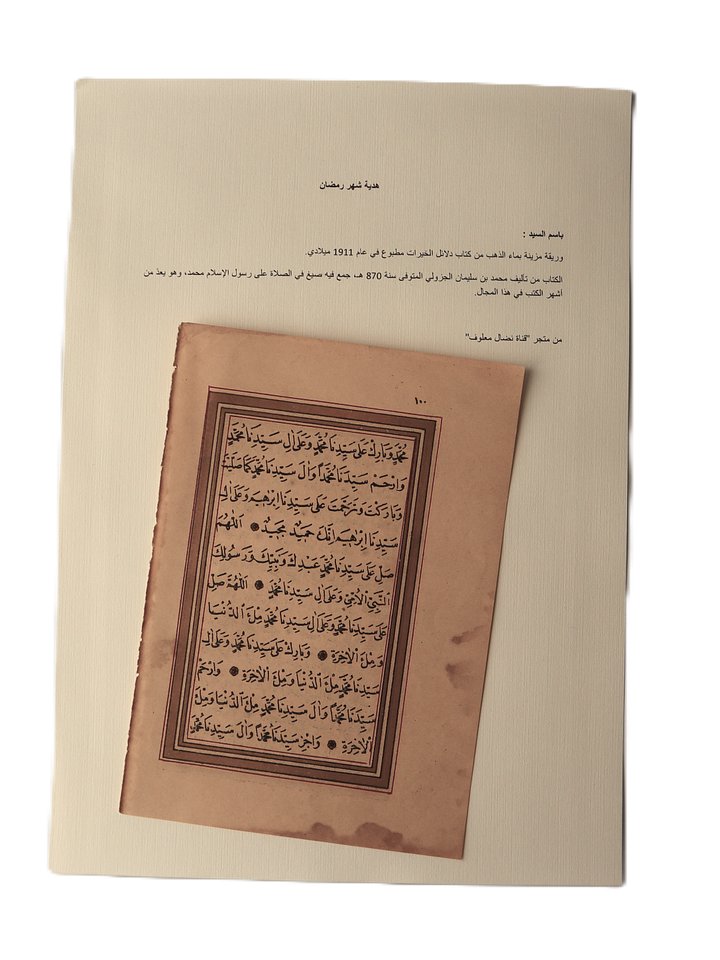 هدية شهر رمضان
باسم السيد :
وريقة مزينة بماء الذهب من كتاب دلائل الخيرات مطبوع في عام 1911 ميلادي.
الكتاب من تأليف محمد بن سليمان الجزولي المتوفى سنة 870 هـ، جمع فيه صيغ في الصلاة على رسول الإسلام محمد، وهو يعدّ من
أشهر الكتب في هذا المجال.
من متجر "قناة نضال معلوف"
١٠٠
مُحَمَّدٍ وَبَارِكْ عَلَى سَيِّدِنَا مُحَمَّدٍ وَعَلَى اٰلِ سَيِّدِنَا مُحَمَّدٍ
وَارْحَمْ سَيِّدَنَا مُحَمَّدًا وَاٰلَ سَيِّدِنَا مُحَمَّدٍ كَمَا صَلَّيْتَ
وَبَارَكْتَ وَتَرَحَّمْتَ عَلَى سَيِّدِنَا اِبْرٰهِيمَ وَعَلَى اٰلِ
سَيِّدِنَا اِبْرٰهِيمَ اِنَّكَ حَمِيدٌ مَجِيدٌ اَللّٰهُمَّ
صَلِّ عَلَى سَيِّدِنَا مُحَمَّدٍ عَبْدِكَ وَنَبِيِّكَ وَرَسُولِكَ
اَلنَّبِيِّ الْاُمِّيِّ وَعَلَى اٰلِ سَيِّدِنَا مُحَمَّدٍ اَللّٰهُمَّ صَلِّ
عَلَى سَيِّدِنَا مُحَمَّدٍ وَعَلَى اٰلِ سَيِّدِنَا مُحَمَّدٍ مِلْءَ الدُّنْيَا
وَمِلْءَ الْاٰخِرَةِ وَبَارِكْ عَلَى سَيِّدِنَا مُحَمَّدٍ وَعَلَى اٰلِ
سَيِّدِنَا مُحَمَّدٍ مِلْءَ الدُّنْيَا وَمِلْءَ الْاٰخِرَةِ وَارْحَمْ
سَيِّدَنَا مُحَمَّدًا وَاٰلَ سَيِّدِنَا مُحَمَّدٍ مِلْءَ الدُّنْيَا وَمِلْءَ
الْاٰخِرَةِ وَاجْزِ سَيِّدَنَا مُحَمَّدًا وَاٰلَ سَيِّدِنَا مُحَمَّدٍ